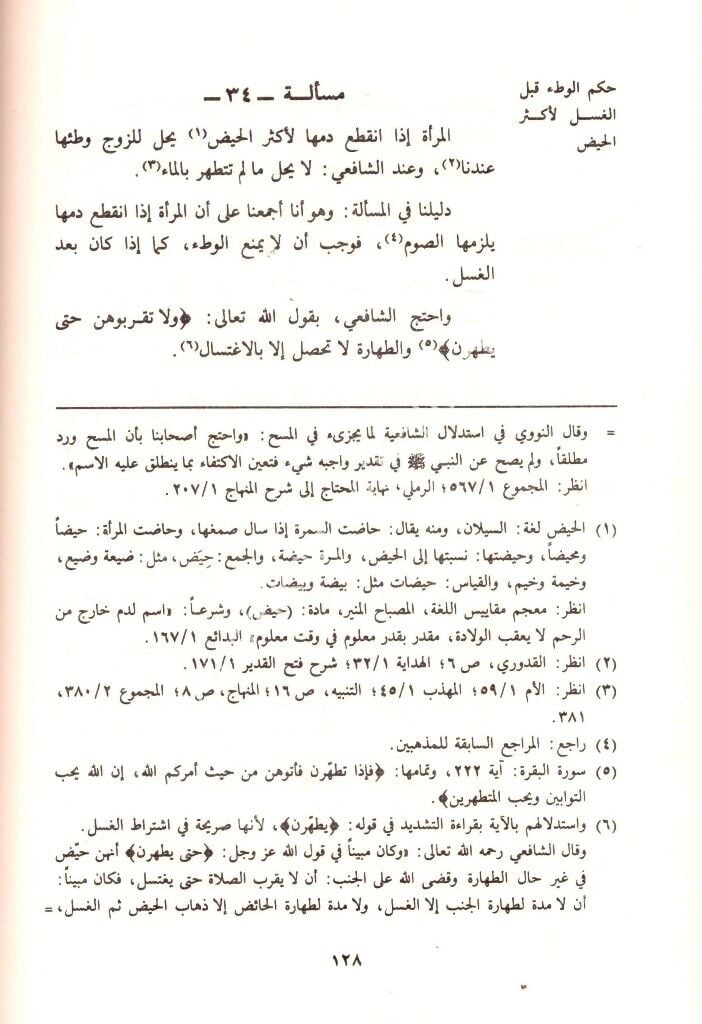 حكم الوطء قبل
الغسل لأكثر
الحيض
مسألة - ٣٤ -
المرأة إذا انقطع دمها لأكثر الحيض(١) يحل للزوج وطئها
عندنا(٢)، وعند الشافعي: لا يحل ما لم تتطهر بالماء(٣).
دليلنا في المسألة: وهو أنا أجمعنا على أن المرأة إذا انقطع دمها
يلزمها الصوم(٤)، فوجب أن لا يمنع الوطء، كما إذا كان بعد
الغسل.
واحتج الشافعي، بقول الله تعالى: ﴿ولا تقربوهن حتى
يطهرن﴾(٥) والطهارة لا تحصل إلا بالاغتسال(٦).
= وقال النووي في استدلال الشافعية لما يجزىء في المسح: «واحتج أصحابنا بأن المسح ورد
مطلقاً، ولم يصح عن النبي ﷺ في تقدير واجبه شيء فتعين الاكتفاء بما ينطلق عليه الاسم».
انظر: المجموع ٥٦٧/١؛ الرملي، نهاية المحتاج إلى شرح المنهاج ٢٠٧/١.
(١) الحيض لغة: السيلان، ومنه يقال: حاضت السمرة إذا سال صمغها، وحاضت المرأة: حيضاً
ومحيضاً، وحيضتها: نسبتها إلى الحيض، والمرة حيضة، والجمع: حِيَض، مثل: ضيعة وضيع،
وخيمة وخيم، والقياس: حيضات مثل: بيضة وبيضات.
انظر: معجم مقاييس اللغة، المصباح المنير، مادة: (حيض)، وشرعاً: «اسم لدم خارج من
الرحم لا يعقب الولادة، مقدر بقدر معلوم في وقت معلوم» البدائع ١٦٧/١.
(٢) انظر: القدوري، ص ٦؛ الهداية ٣٢/١؛ شرح فتح القدير ١٧١/١.
(٣) انظر: الأم ٥٩/١؛ المهذب ٤٥/١؛ التنبيه، ص ١٦؛ المنهاج، ص ٨؛ المجموع ٣٨٠/٢،
٣٨١.
(٤) راجع: المراجع السابقة للمذهبين.
(٥) سورة البقرة: آية ٢٢٢، وتمامها: ﴿فإذا تطهّرن فأتوهن من حيث أمركم الله، إن الله يحب
التوابين ويحب المتطهرين﴾.
(٦) واستدلالهم بالآية بقراءة التشديد في قوله: ﴿يطهّرن﴾، لأنها صريحة في اشتراط الغسل.
وقال الشافعي رحمه الله تعالى: «وكان مبيناً في قول الله عز وجل: ﴿حتى يطهرن﴾ أنهن حيّض
في غير حال الطهارة وقضى الله على الجنب: أن لا يقرب الصلاة حتى يغتسل، فكان مبيناً:
أن لا مدة لطهارة الجنب إلا الغسل، ولا مدة لطهارة الحائض إلا ذهاب الحيض ثم الغسل، =
١٢٨